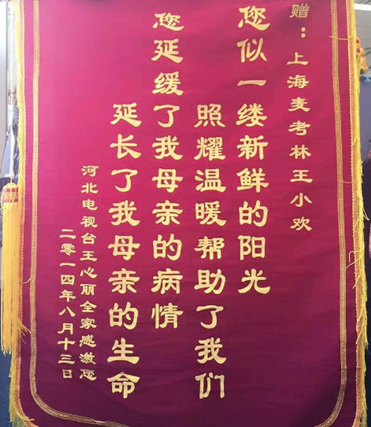 赠：上海麦考林王小欢
您似一缕新鲜的阳光
照耀温暖帮助了我们
您延缓了我母亲的病情
延长了我母亲的生命
河北电视台王心丽全家感激您
二零一四年八月十三日